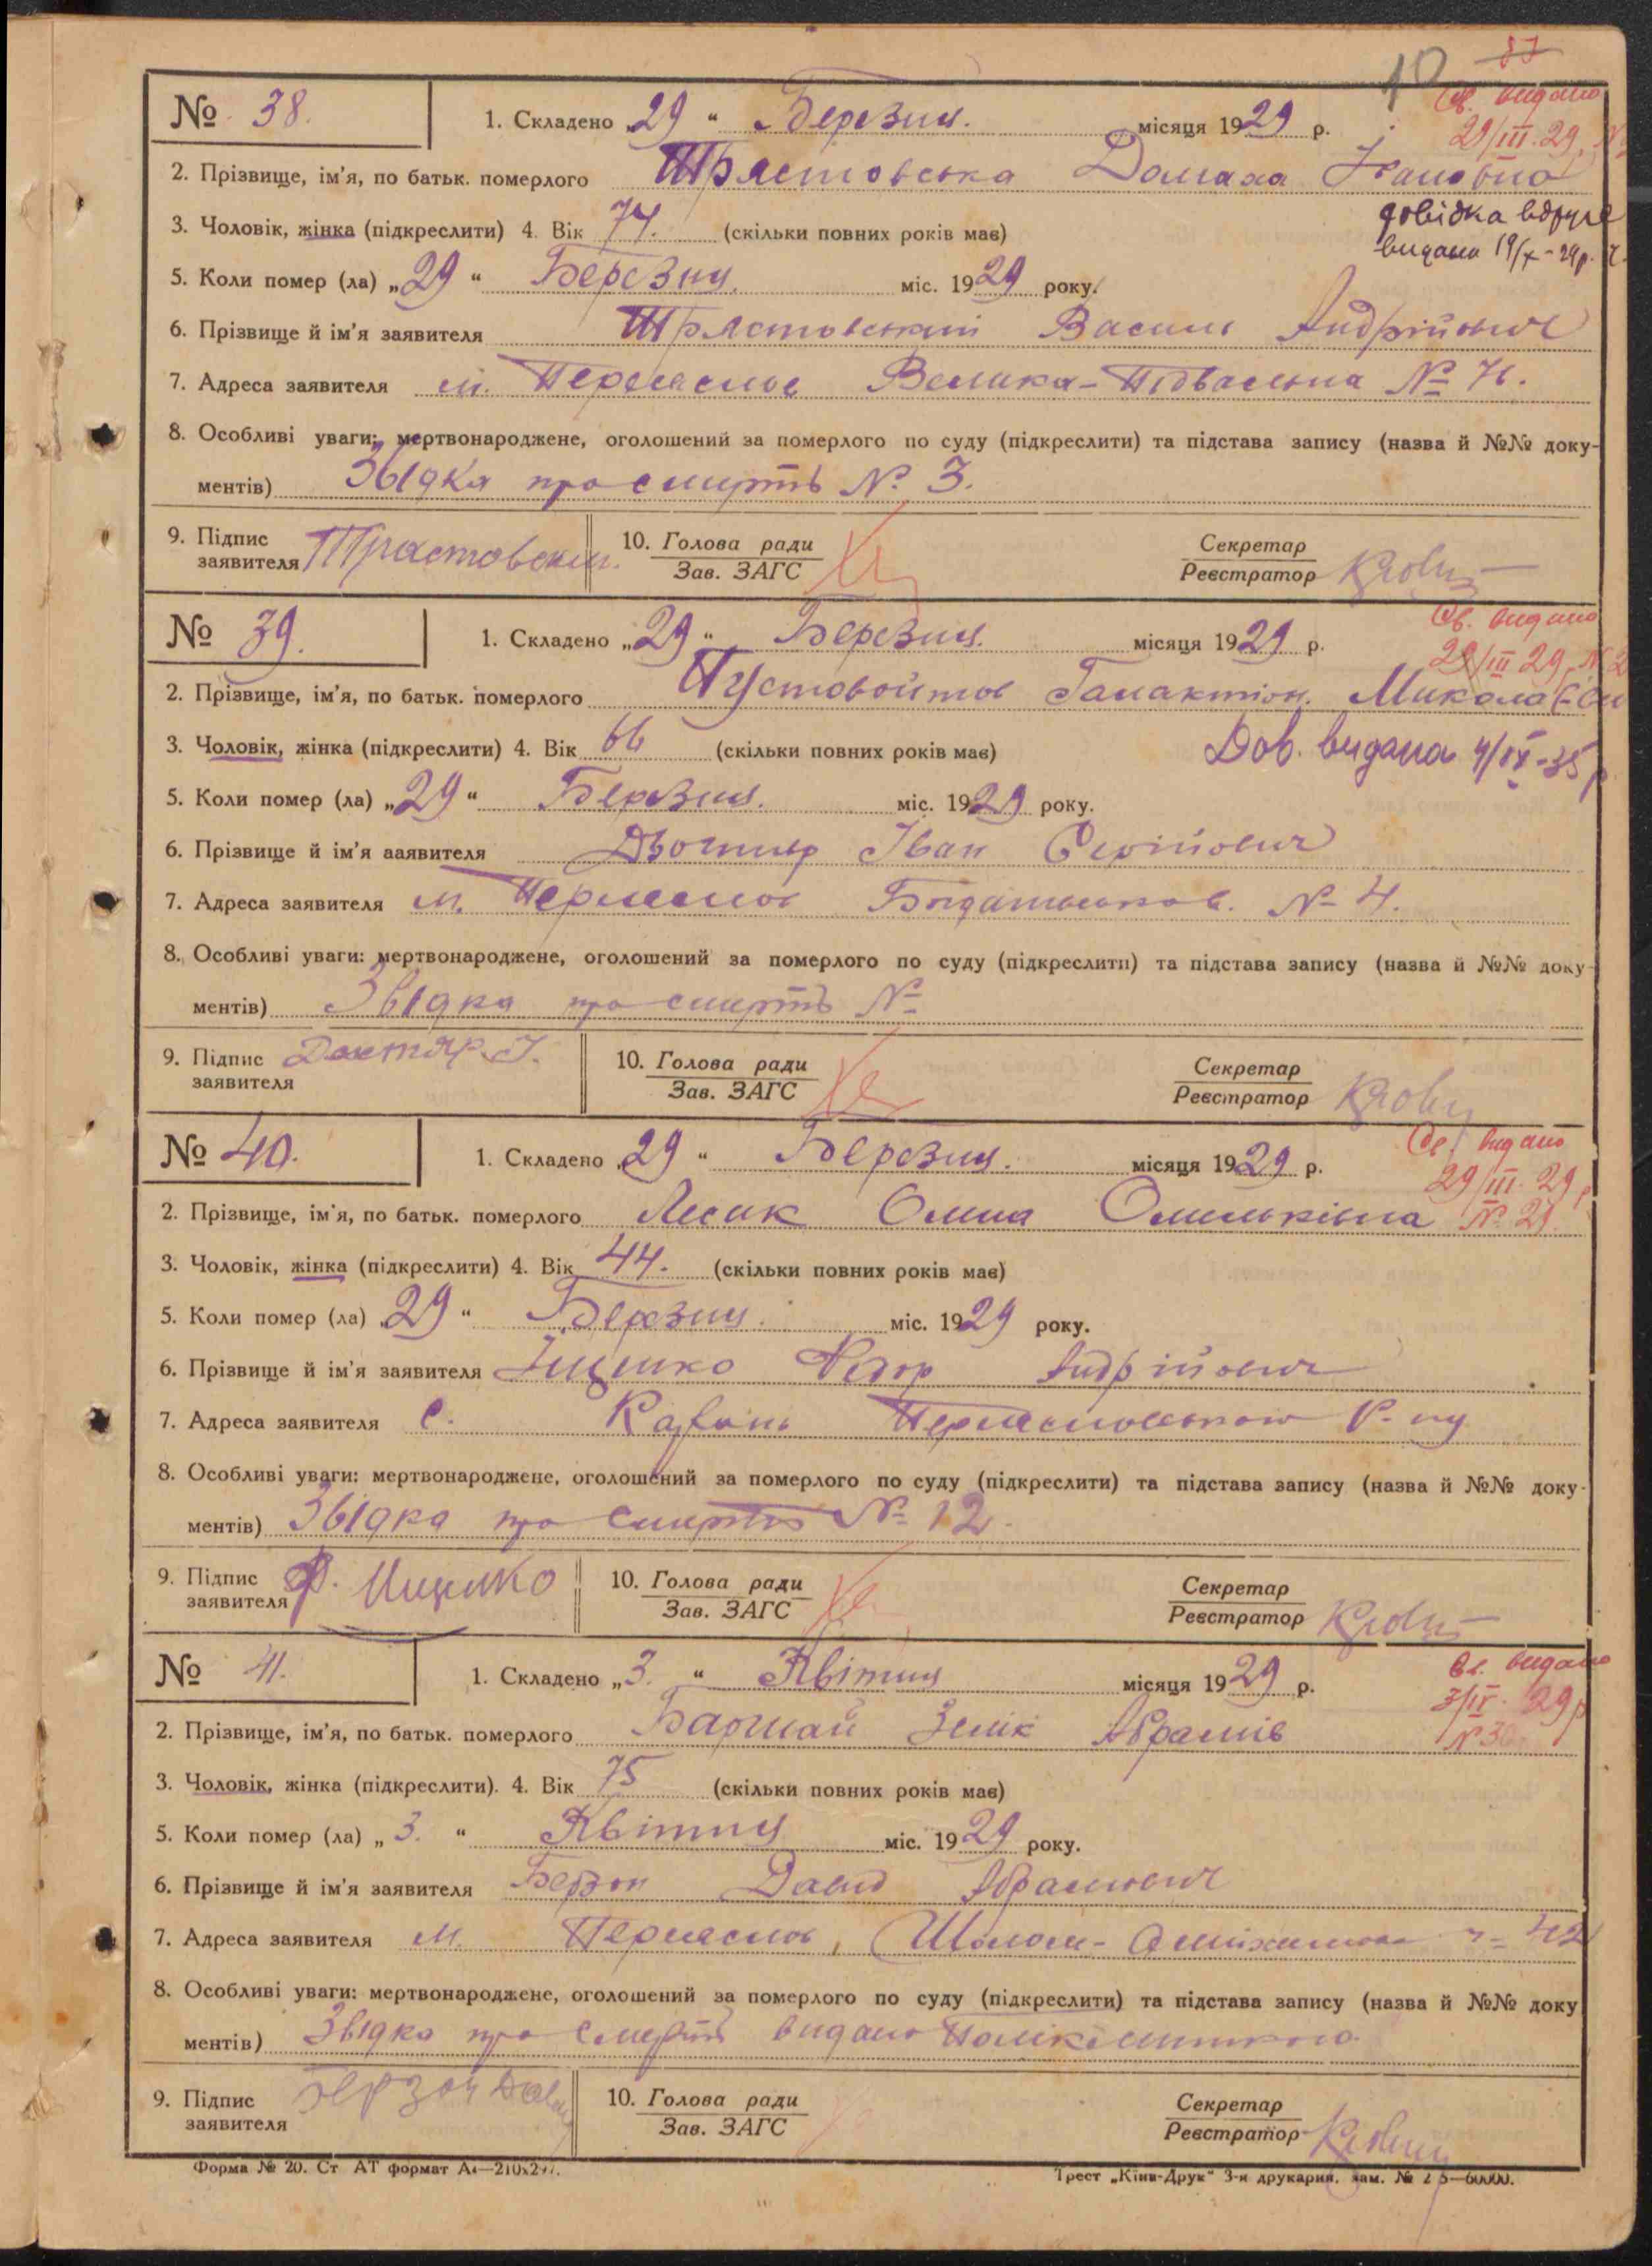 10 87
№ 38. 1. Складено „29“ Березня. місяця 1929 р. Св. видано
29/III.29.
2. Прізвище, ім'я, по батьк. померлого Трястовська Домаха
довідка вдруге
3. Чоловік, жінка (підкреслити) 4. Вік 74. (скільки повних років має)
видана 19/X-29р.
5. Коли помер (ла) „29“ Березня. міс. 1929 року.
6. Прізвище й ім'я заявителя Трястовський Василь Андрійович
7. Адреса заявителя м. Переяслов Велика-Підвальна № 76.
8. Особливі уваги: мертвонароджене, оголошений за померлого по суду (підкреслити) та підстава запису (назва й №№ доку-
ментів) Звідка про смерть № 3.
9. Підпис
заявителя 10. Голова ради
Зав. ЗАГС Секретар
Реєстратор
№ 39. 1. Складено „29“ Березня. місяця 1929 р. Св. видано
29/III 29р.
2. Прізвище, ім'я, по батьк. померлого Пустовойтов Галактіон.
3. Чоловік, жінка (підкреслити) 4. Вік 66 (скільки повних років має) Дов. видана 4/IX-35р
5. Коли помер (ла) „29“ Березня. міс. 1929 року.
6. Прізвище й ім'я ааявителя Іван Сергійович
7. Адреса заявителя м. Переяслов № 4.
8. Особливі уваги: мертвонароджене, оголошений за померлого по суду (підкреслити) та підстава запису (назва й №№ доку-
ментів) Звідка про смерть №
9. Підпис
заявителя 10. Голова ради
Зав. ЗАГС Секретар
Реєстратор
№ 40. 1. Складено „29“ Березня. місяця 1929 р. Св. видано
29/III.29р
2. Прізвище, ім'я, по батьк. померлого Лесик Олена Омельківна № 29.
3. Чоловік, жінка (підкреслити) 4. Вік 44. (скільки повних років має)
5. Коли помер (ла) „29“ Березня. міс. 1929 року.
6. Прізвище й ім'я заявителя Іщенко Федор Андрійович
7. Адреса заявителя с. Переяславського Р-ну
8. Особливі уваги: мертвонароджене, оголошений за померлого по суду (підкреслити) та підстава запису (назва й №№ доку-
ментів) Звідка про смерть № 12.
9. Підпис
заявителя Ф. 10. Голова ради
Зав. ЗАГС Секретар
Реєстратор
№ 41. 1. Складено „3.“ Квітня місяця 1929 р. Св. видано
3/IV. 29р
2. Прізвище, ім'я, по батьк. померлого Зелік Абрамів № 30
3. Чоловік, жінка (підкреслити). 4. Вік 75 (скільки повних років має)
5. Коли помер (ла) „3.“ Квітня міс. 1929 року.
6. Прізвище й ім'я заявителя Берзон Давид Абрамович
7. Адреса заявителя м. Переяслов, Шолом- 42
8. Особливі уваги: мертвонароджене, оголошений за померлого по суду (підкреслити) та підстава запису (назва й №№ доку
ментів) Звідка про смерть видано
9. Підпис
заявителя Берзон 10. Голова ради
Зав. ЗАГС Секретар
Реєстратор
Форма № 20. Ст АТ формат А4—210х297. Трест „Київ-Друк“ 3-я друкарня.